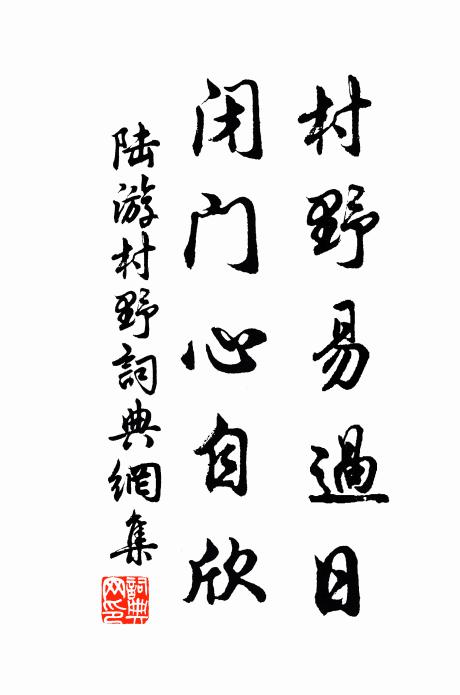 村野易過日
闭门心自欣
陆游村野詞典網集
詞典网印